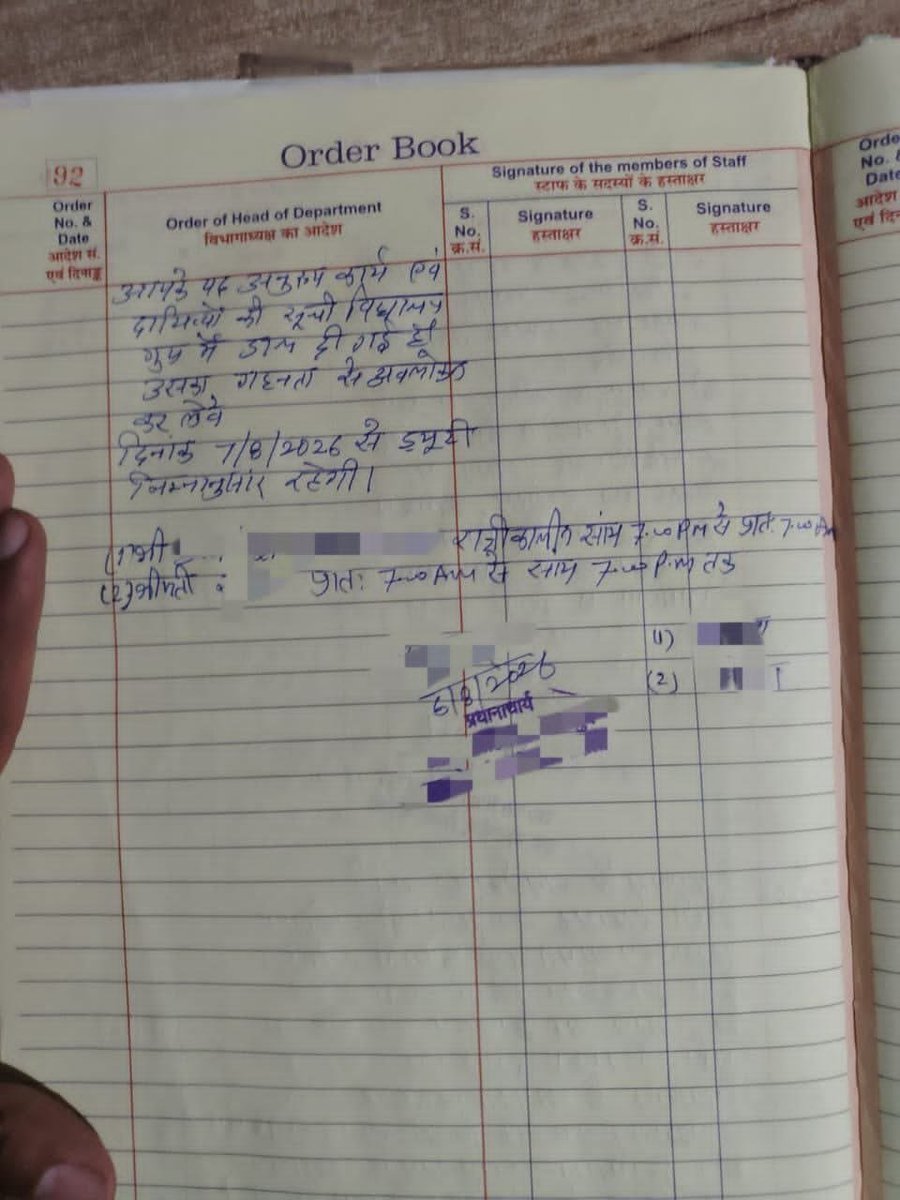 Order Book
92
Order No. & Date
आदेश सं. एवं दिनाङ्क
Order of Head of Department
विभागाध्यक्ष का आदेश
Signature of the members of Staff
स्टाफ के सदस्यों के हस्ताक्षर
S. No. क्र.सं.
Signature हस्ताक्षर
S. No. क्र.सं.
Signature हस्ताक्षर
आपके पद अनुरूप कार्य एवं
दायित्वों की सूची विद्यालय
ग्रुप में डाल दी गई है।
उसका गहनता से अवलोकन
कर लेवे
दिनांक 7/8/2026 से ड्यूटी
निम्नानुसार रहेगी।
(1) श्री रात्रीकालीन सांय 7.00 P.M से प्रातः 7.00 AM
(2) श्रीमती प्रातः 7.00 A.M से सांय 7.00 P.M तक
(1)
(2)
6/8/2026
प्रधानाचार्य
Orde
No. &
Date
आदेश
एवं दिन